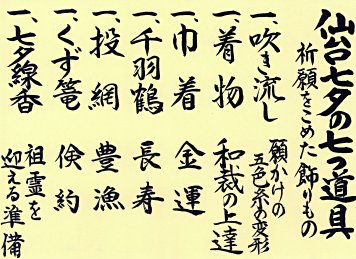 仙台七夕の七つ道具
祈願をこめた飾りもの
一、吹き流し 願かけの
五色糸の変形
一、着物 和裁の上達
一、巾着 金運
一、千羽鶴 長寿
一、投網 豊漁
一、くず篭 倹約
一、七夕線香 祖霊を
迎える準備